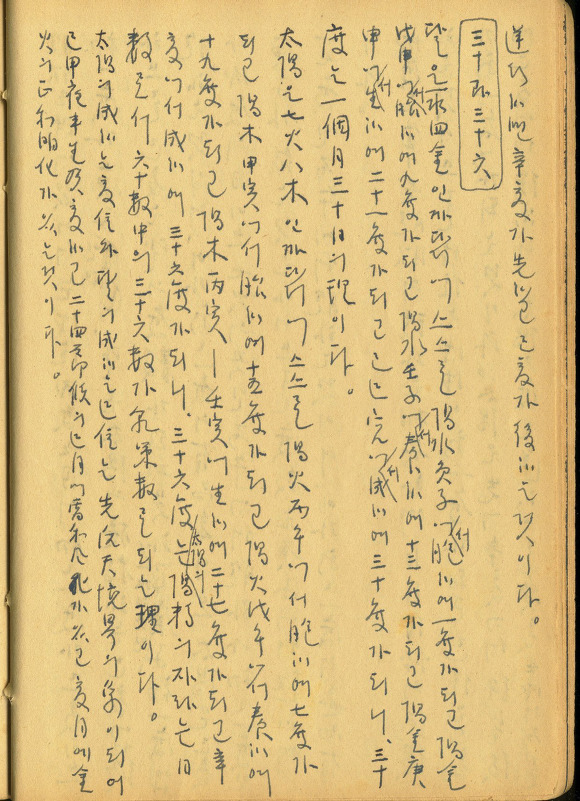 逆行하면 辛亥가 先하고 己亥가 後하는것이다。
三十과三十六
달은 一水四金인까닭에 스스로 陽水庚子에서 胞하여 一度가되고 陽金
戊申에서胎하여 九度가되고 陽水壬子에서養하여 十三度가되고 陽金庚
申에서生하여 二十一度가되고 己巳宮에서成하여 三十度가되니、三十
度는 一個月三十日의理이다。
太陽은七火八木인까닭에 스스로 陽火丙午에서胞하여 七度가
되고 陽木甲寅에서胎하여 十五度가되고 陽火戊午에서養하여
十九度가되고 陽木丙寅ㅡ壬寅에서生하여 二十七度가되고 辛
亥에서成하여 三十六度가되니、三十六度는 太陽의陽精의자라는日
數로서 六十數中의三十六數가 乾策數로되는理이다。
太陽의成하는亥位와 달의成하는巳位는 先后天境界의象이되어
己甲夜半生癸亥하고 二十四節候의巳月에雷和風化가있고 亥月에金
火의正和明化가있는것이다。